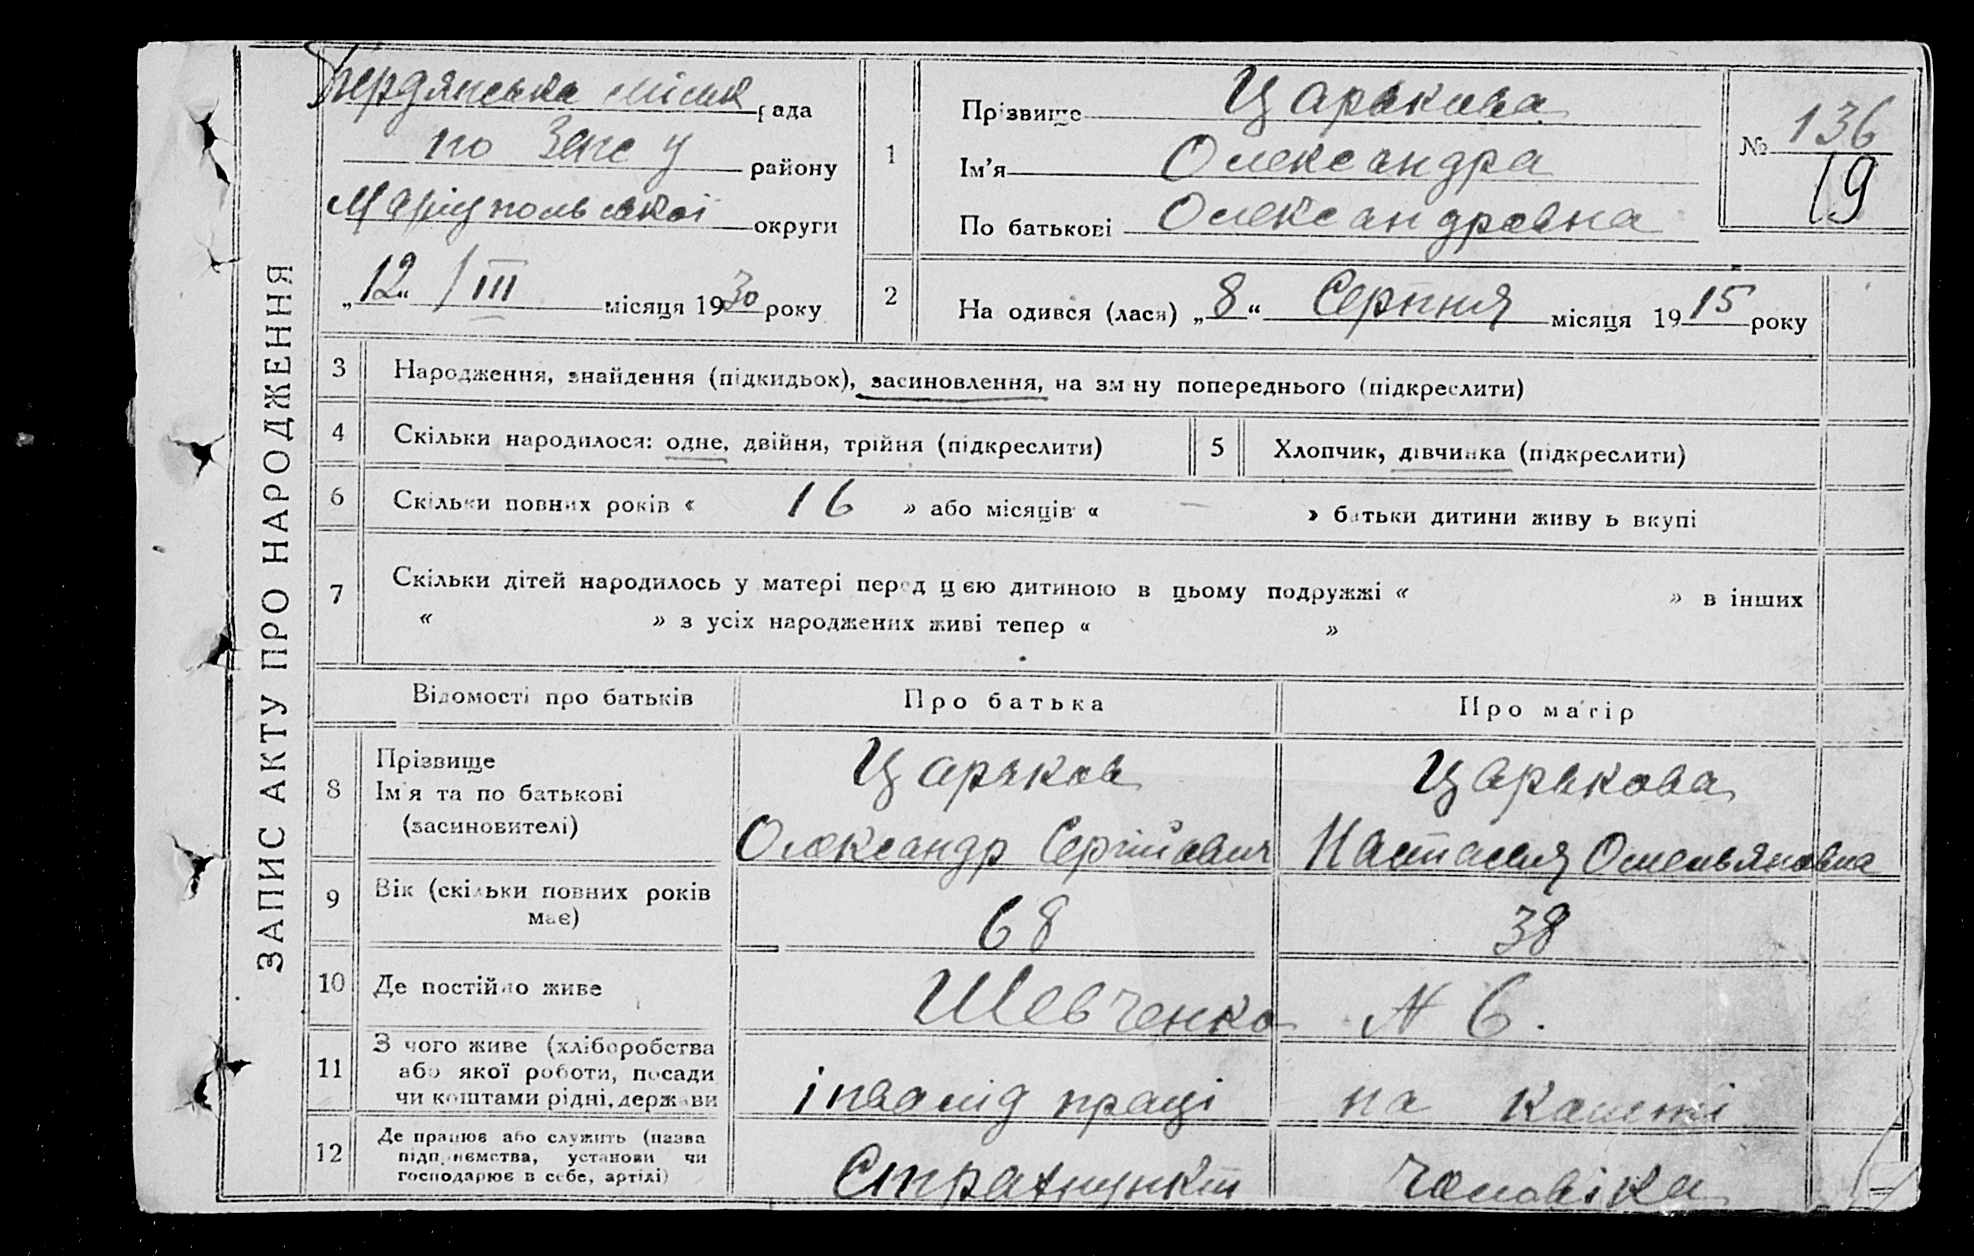 ЗАПИС АКТУ ПРО НАРОДЖЕННЯ
Бердянська міськ рада
по Загс у району
Маріупольської округи
„12“ / III місяця 1930 року
1
Прізвище Царькова
Ім'я Олександра
По батькові Олександровна
№ 136
19
2
Народився (лася) „8“ Серпня місяця 1915 року
3 Народження, знайдення (підкидьок), засиновлення, на зміну попереднього (підкреслити)
4 Скільки народилося: одне, двійня, трійня (підкреслити)
5 Хлопчик, дівчинка (підкреслити)
6 Скільки повних років « 16 » або місяців « — » батьки дитини живуть вкупі
7 Скільки дітей народилось у матері перед цією дитиною в цьому подружжі « » в інших
« » з усіх народжених живі тепер « »
Відомості про батьків Про батька Про матір
8 Прізвище
Ім'я та по батькові
(засиновителі)
Царьков
Олександр Сергійович
Царькова
Настасия Омельяновна
9 Вік (скільки повних років
має)
68
38
10 Де постійно живе
Шевченко N 6.
11 З чого живе (хліборобства
або якої роботи, посади
чи коштами рідні, держави
інвалід праці
на кошті
12 Де працює або служить (назва
підприємства, установи чи
господарює в себе, артілі)
Страхпункт
чоловіка